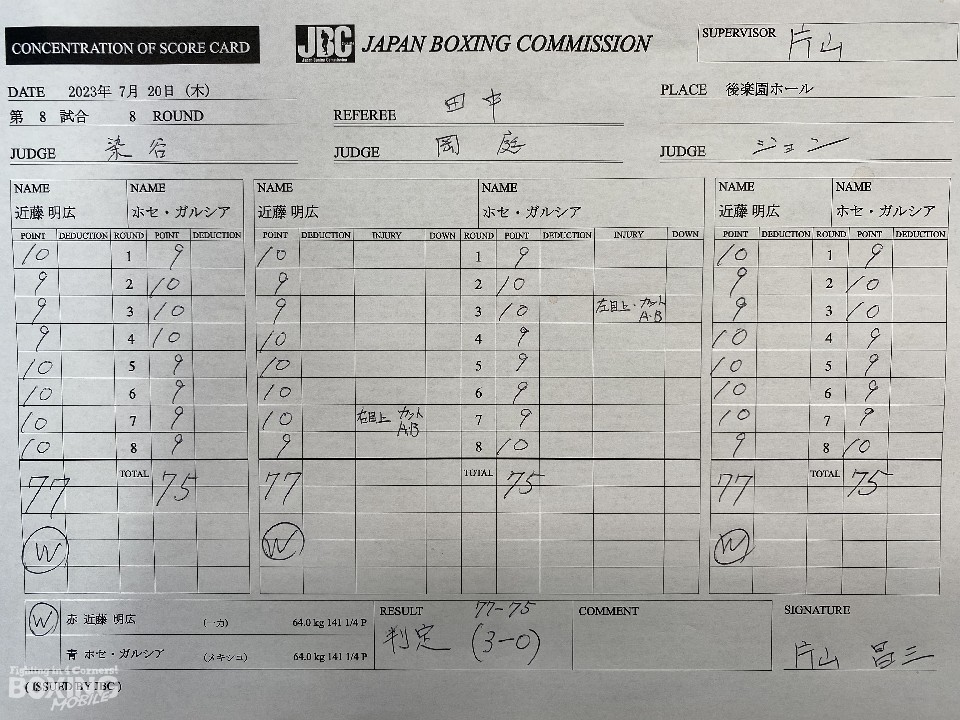 CONCENTRATION OF SCORE CARD
JBC
Japan Boxing Commission
JAPAN BOXING COMMISSION
SUPERVISOR 片山
DATE 2023年 7月 20日 (木)
PLACE 後楽園ホール
第 8 試合 8 ROUND
REFEREE 田中
JUDGE 染谷
JUDGE 岡庭
JUDGE ジョン
NAME NAME NAME NAME NAME NAME
近藤 明広 ホセ・ガルシア 近藤 明広 ホセ・ガルシア 近藤 明広 ホセ・ガルシア
POINT DEDUCTION ROUND POINT DEDUCTION POINT DEDUCTION INJURY DOWN ROUND POINT DEDUCTION INJURY DOWN POINT DEDUCTION ROUND POINT DEDUCTION
10 1 9 10 1 9 10 1 9
9 2 10 9 2 10 9 2 10
9 3 10 9 3 10 左目上・カット A・B 9 3 10
9 4 10 10 4 9 10 4 9
10 5 9 10 5 9 10 5 9
10 6 9 10 6 9 10 6 9
10 7 9 10 右目上 カット A・B 7 9 10 7 9
10 8 9 9 8 10 9 8 10
77 TOTAL 75 77 TOTAL 75 77 TOTAL 75
W W W
W 赤 近藤 明広 (一力) 64.0 kg 141 1/4 P
青 ホセ・ガルシア (メキシコ) 64.0 kg 141 1/4 P
RESULT 77-75
判定 (3-0)
COMMENT
SIGNATURE
片山 昌三
(ISSUED BY JBC)
Fighting in 4 Corners!
BOXING
MOBILE